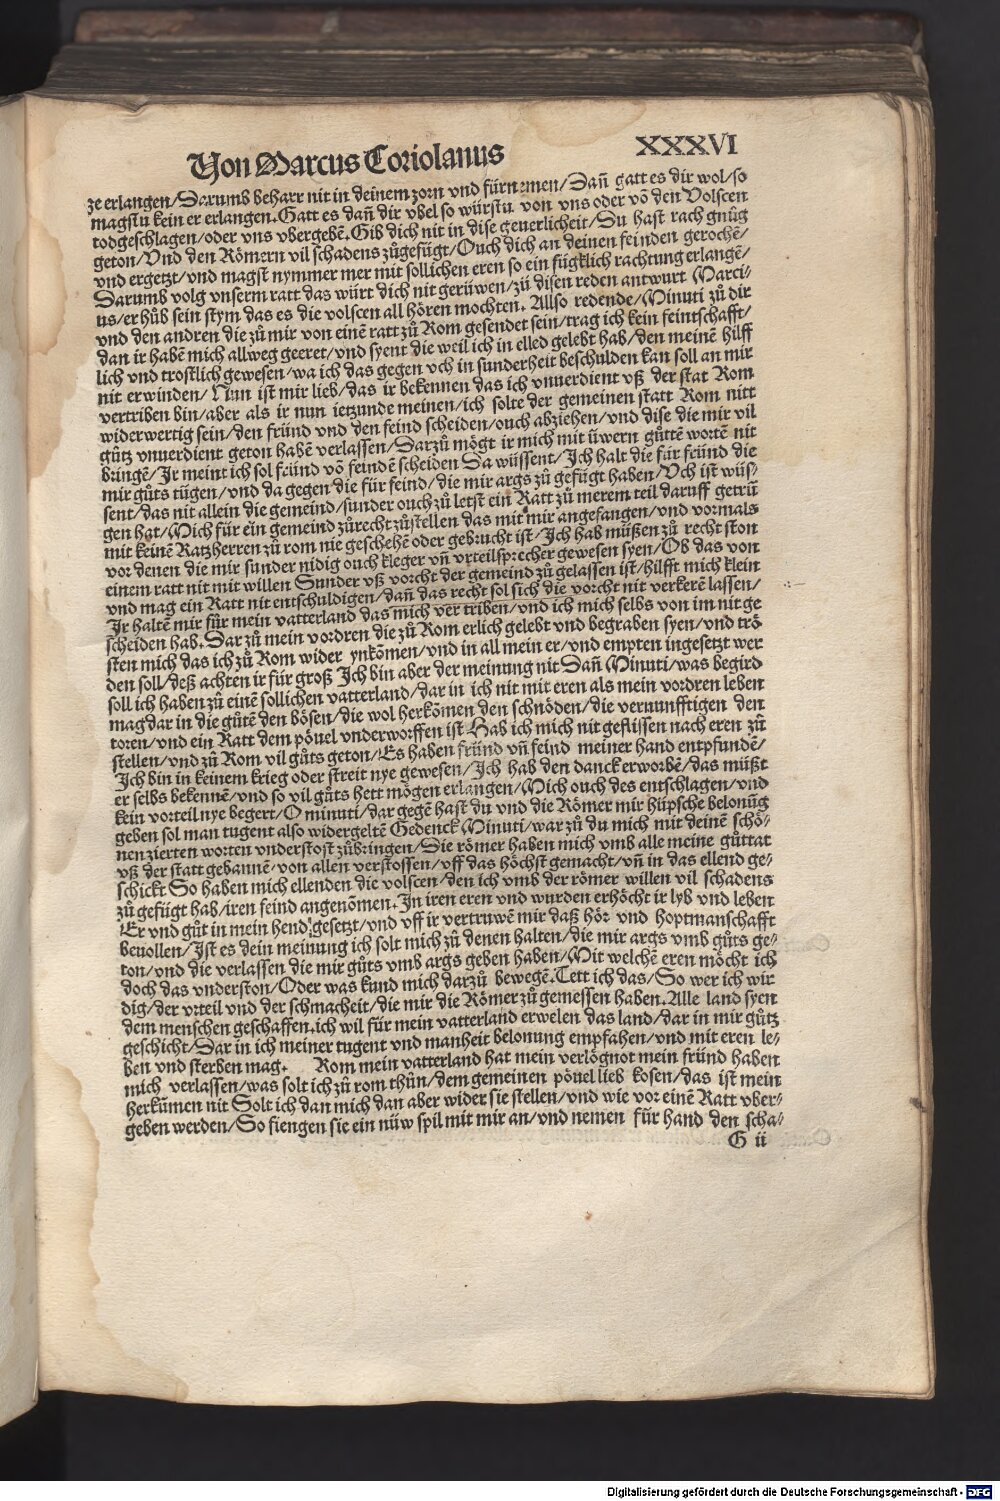 Von Marcus Coriolanus XXXVI
ze erlangen/Darumb beharr nit in deinem zorn vnd fürnemen/Dañ gatt es dir wol/so
magstu kein er erlangen.Gatt es dañ dir vbel so würstu von vns oder võ den Volscen
todgeschlagen/oder vns vbergebẽ.Gib dich nit in dise geuerlicheit/Du hast rach gnůg
geton/Vnd den Römern vil schadens zůgefügt/Ouch dich an deinen feinden gerochẽ/
vnd ergetzt/vnd magst nymmer mer mit sollichen eren so ein fügklich rachtung erlangẽ/
Darumb volg vnserm ratt das würt dich nit gerüwen/zů disen reden antwurt Marci⸗
us/er hůb sein stym das es die volscen all hören mochten. Allso redende/Minuti zů dir
vnd den andren die zů mir von einẽ ratt zů Rom gesendet sein/trag ich kein feintschafft/
dan ir habẽ mich allweg geeret/vnd syent die weil ich in elled gelebt hab/den meinẽ hilff
lich vnd trostlich gewesen/wa ich das gegen vch in sunderheit beschulden kan soll an mir
nit erwinden/Nun ist mir lieb/das ir bekennen das ich vnuerdient vß der stat Rom
vertriben bin/aber als ir nun ietzunde meinen/ich solte der gemeinen statt Rom nitt
widerwertig sein/den fründ vnd den feind scheiden/ouch abziehen/vnd dise die mir vil
gůtz vnuerdient geton habẽ verlassen/Darzů mögt ir mich mit üwern gůttẽ wortẽ nit
bringẽ/Ir meint ich sol fründ võ feindẽ scheiden Da wüssent/Ich halt die für fründ die
mir gůts tůgen/vnd da gegen die für feind/die mir args zů gefügt haben/Vch ist wüs⸗
sent/das nit allein die gemeind/sunder ouch zů letst ein Ratt zů merem teil daruff getrũ
gen hat/Mich für ein gemeind zůrecht zůstellen das mit mir angefangen/vnd vormals
mit keinẽ Ratzherren zů rom nie geschehẽ oder gebrucht ist/Ich hab müßen zů recht ston
vor denen die mir sunder nidig ouch kleger vñ vrteilsprecher gewesen syen/Ob das von
einem ratt nit mit willen Sunder vß vorcht der gemeind zů gelassen ist/hilfft mich klein
vnd mag ein Ratt nit entschuldigen/dañ das recht sol sich die vorcht nit verkerẽ lassen/
Ir haltẽ mir für mein vatterland das mich ver triben/vnd ich mich selbs von im nit ge
scheiden hab.Dar zů mein vordren die zů Rom erlich gelebt vnd begraben syen/vnd trö
sten mich das ich zů Rom wider ynkõmen/vnd in all mein er/vnd empten ingesetzt wer
den soll/deß achten ir für groß Ich bin aber der meinung nit Dañ Minuti/was begird
soll ich haben zů einẽ sollichen vatterland/dar in ich nit mit eren als mein vordren leben
mag dar in die gůtẽ den bösen/die wol herkõmen den schnöden/die vernunfftigen den
toren/vnd ein Ratt dem pöuel vnderworffen ist Hab ich mich nit geflissen nach eren zů
stellen/vnd zů Rom vil gůts geton/Es haben fründ vñ feind meiner hand entpfundẽ/
Ich bin in keinem krieg oder streit nye gewesen/Ich hab den danck erworbẽ/das müßt
er selbs bekennẽ/vnd so vil gůts hett mögen erlangen/Mich ouch des entschlagen/vnd
kein vorteil nye begert/O minuti/dar gegẽ hast du vnd die Römer mir hüpsche belonũg
geben sol man tugent also widergeltẽ Gedenck Minuti/war zů du mich mit deinẽ schö⸗
nen zierten worten vnderstost zůbringen/Die römer haben mich vmb alle meine gůttat
vß der statt gebannẽ/von allen verstossen/vff das höchst gemacht/vñ in das ellend ge⸗
schickt So haben mich ellenden die volscen/den ich vmb der römer willen vil schadens
zů gefügt hab/iren feind angenõmen.In iren eren vnd wurden erhöcht ir lyb vnd leben
Er vnd gůt in mein hend gesetzt/vnd vff ir vertruwẽ mir daß hör vnd hoptmanschafft
beuollen/Ist es dein meinung ich solt mich zů denen halten/die mir args vmb gůts ge⸗
ton/vnd die verlassen die mir gůts vmb args geben haben/Mit welchẽ eren möcht ich
doch das vnderston/Oder was kund mich darzů bewegẽ.Tett ich das/So wer ich wir
dig/der vrteil vnd der schmacheit/die mir die Römer zů gemessen haben.Alle land syen
dem menschen geschaffen.ich wil für mein vatterland erwelen das land/dar in mir gůtz
geschicht/Dar in ich meiner tugent vnd manheit belonung empfahen/vnd mit eren le⸗
ben vnd sterben mag. Rom mein vatterland hat mein verlögnot mein fründ haben
mich verlassen/was solt ich zů rom thůn/dem gemeinen pöuel lieb kosen/das ist mein
herkümen nit Solt ich dan mich dan aber wider sie stellen/vnd wie vor einẽ Ratt vber⸗
geben werden/So fiengen sie ein nüw spil mit mir an/vnd nemen für hand den scha⸗
G ii
Digitalisierung gefördert durch die Deutsche Forschungsgemeinschaft - DFG